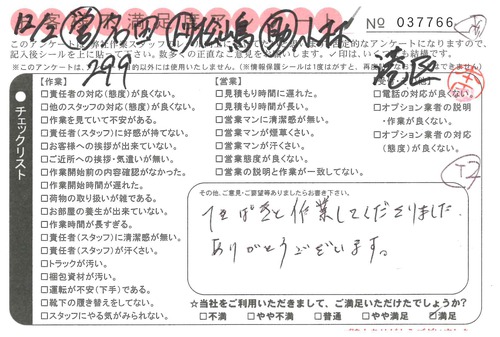 No 037766
299
港区
このアンケートは、弊社作業スタッフ
記入後シールを上に貼って下さい。数多くの正直なご意見をお聞かせ下さい。✓印は、いくつでも結構です。
【作業】
□責任者の対応(態度)が良くない。
□他のスタッフの対応(態度)が良くない。
□作業を見ていて不安がある。
□責任者(スタッフ)に好感が持てない。
□お客様への挨拶が出来ていない。
□ご近所への挨拶・気遣いが無い。
□作業開始前の内容確認がなかった。
□作業開始時間が遅れた。
□荷物の取り扱いが雑である。
□お部屋の養生が出来ていない。
□作業が長すぎる。
□責任者(スタッフ)に清潔感が無い。
□責任者(スタッフ)が汗くさい。
□トラックが汚い。
□梱包資材が汚い。
□運転が不安(下手)である。
□靴下の履き替えをしてない。
□スタッフにやる気がみられない。
【営業】
□見積もり時間に遅れた。
□見積もり時間が長い。
□営業マンに清潔感が無い。
□営業マンが煙草くさい。
□営業マンが汗くさい。
□営業態度が良くない。
□営業の説明と作業が一致してない。
□電話の対応が良くない。
□オプション業者の説明
・作業が良くない。
□オプション業者の対応
(態度)が良くない。
チェックリスト
その他、ご意見・ご要望等ありましたらお書き下さい。
てきぱきと作業してくださりました
ありがとうございます。
☆当社をご利用いただきまして、ご満足いただけたでしょうか?
□不満 □やや不満 □普通 □やや満足 ☑満足